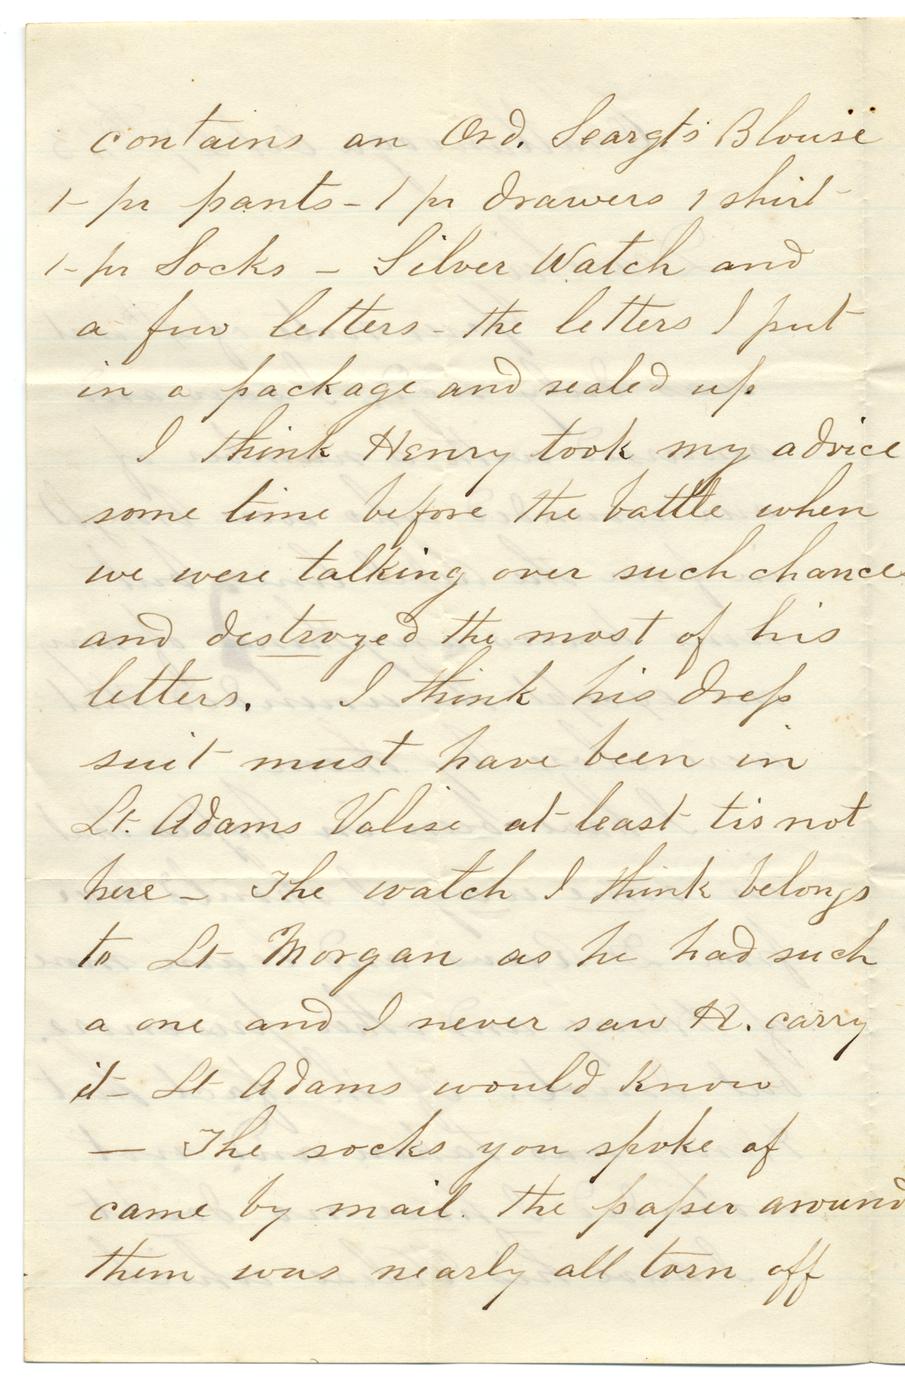 contains an Ord. Seargt's Blouse
1- pr pants - 1 pr drawers 1 shirt -
1- pr Socks - Silver Watch and
a few letters - the letters I put
in a package and sealed up
I think Henry took my advice
some time before the battle when
we were talking over such chance
and destroyed the most of his
letters. I think his dress
suit must have been in
Lt. Adams Valise at least tis not
here - The watch I think belongs
to Lt Morgan as he had such
a one and I never saw H. carry
it - Lt Adams would know
— The socks you spoke of
came by mail. the paper around
them was nearly all torn off